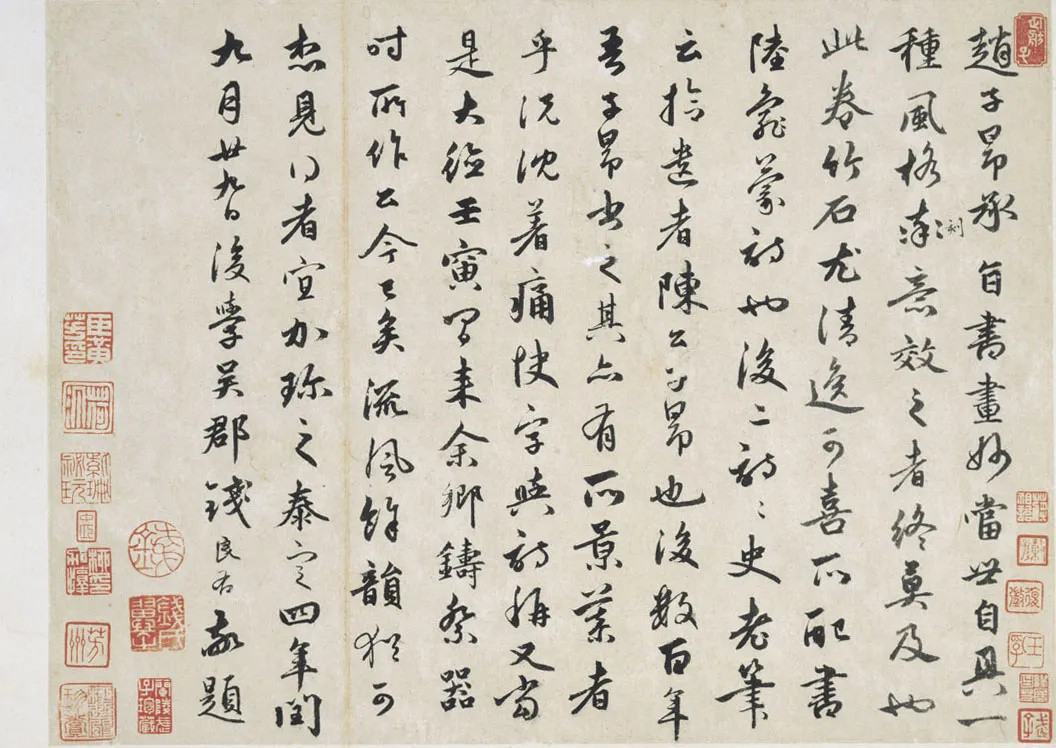 趙子昂承旨書畫妙當世自具一
種風格刻意效之者終莫及也
此卷竹石尤清逸可喜所配書
陸龜蒙詩也後二詩〻史老筆
云拾遺者陳公子昂也後數百年
吾子昂書之其亦有所景慕者
乎況沈着痛快字與詩稱又當
是大德壬寅間來余鄉鑄祭器
時所作公今已矣流風餘韻猶可
想見得者宜加珍之泰定四年閏
九月廿九日後學吳郡錢良右敬題